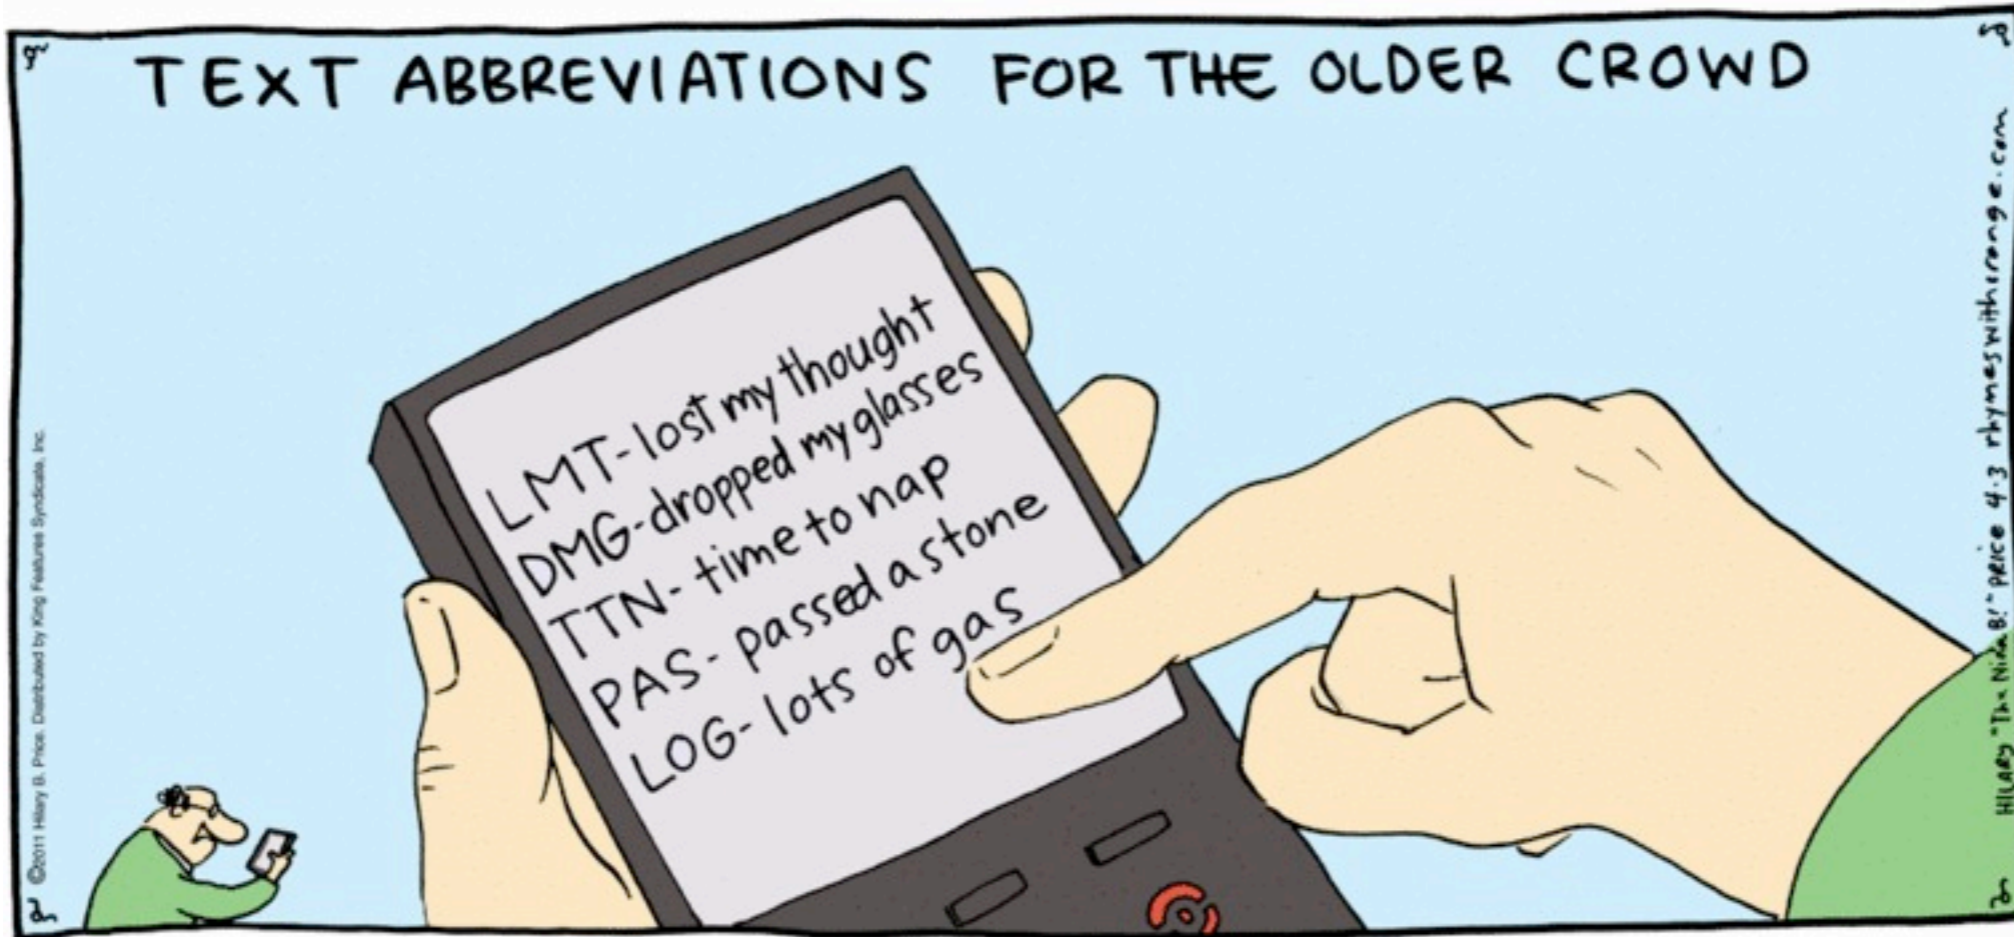 TEXT ABBREVIATIONS FOR THE OLDER CROWD
LMT-lost my thought
DMG-dropped my glasses
TTN-time to nap
PAS-passed a stone
LOG-lots of gas
©2011 Hilary B. Price. Distributed by King Features Syndicate, Inc.
HILARY "The Nina B!" PRICE 4.3 rhymeswithorange.com